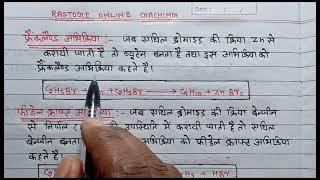 RASTOGI ONLINE COACHING
Date : / /
फ्रैंकलैण्ड अभिक्रिया :- जब एथिल ब्रोमाइड की क्रिया Zn से
करायी जाती है तो ब्यूटेन बनता है तथा इस अभिक्रिया को
फ्रैंकलैण्ड अभिक्रिया कहते हैं।
C₂H₅Br + C₂H₅Br → C₄H₁₀ + Zn Br₂
फ्रीडेल क्राफ्ट :- जब एथिल ब्रोमाइड की क्रिया बेन्जीन
से निर्जल की उपस्थिति में करायी जाती है तो एथिल
बेन्जीन बनता अभिक्रिया को फ्रीडेल क्राफ्ट अभिक्रिया
कहते हैं।
+ HBr